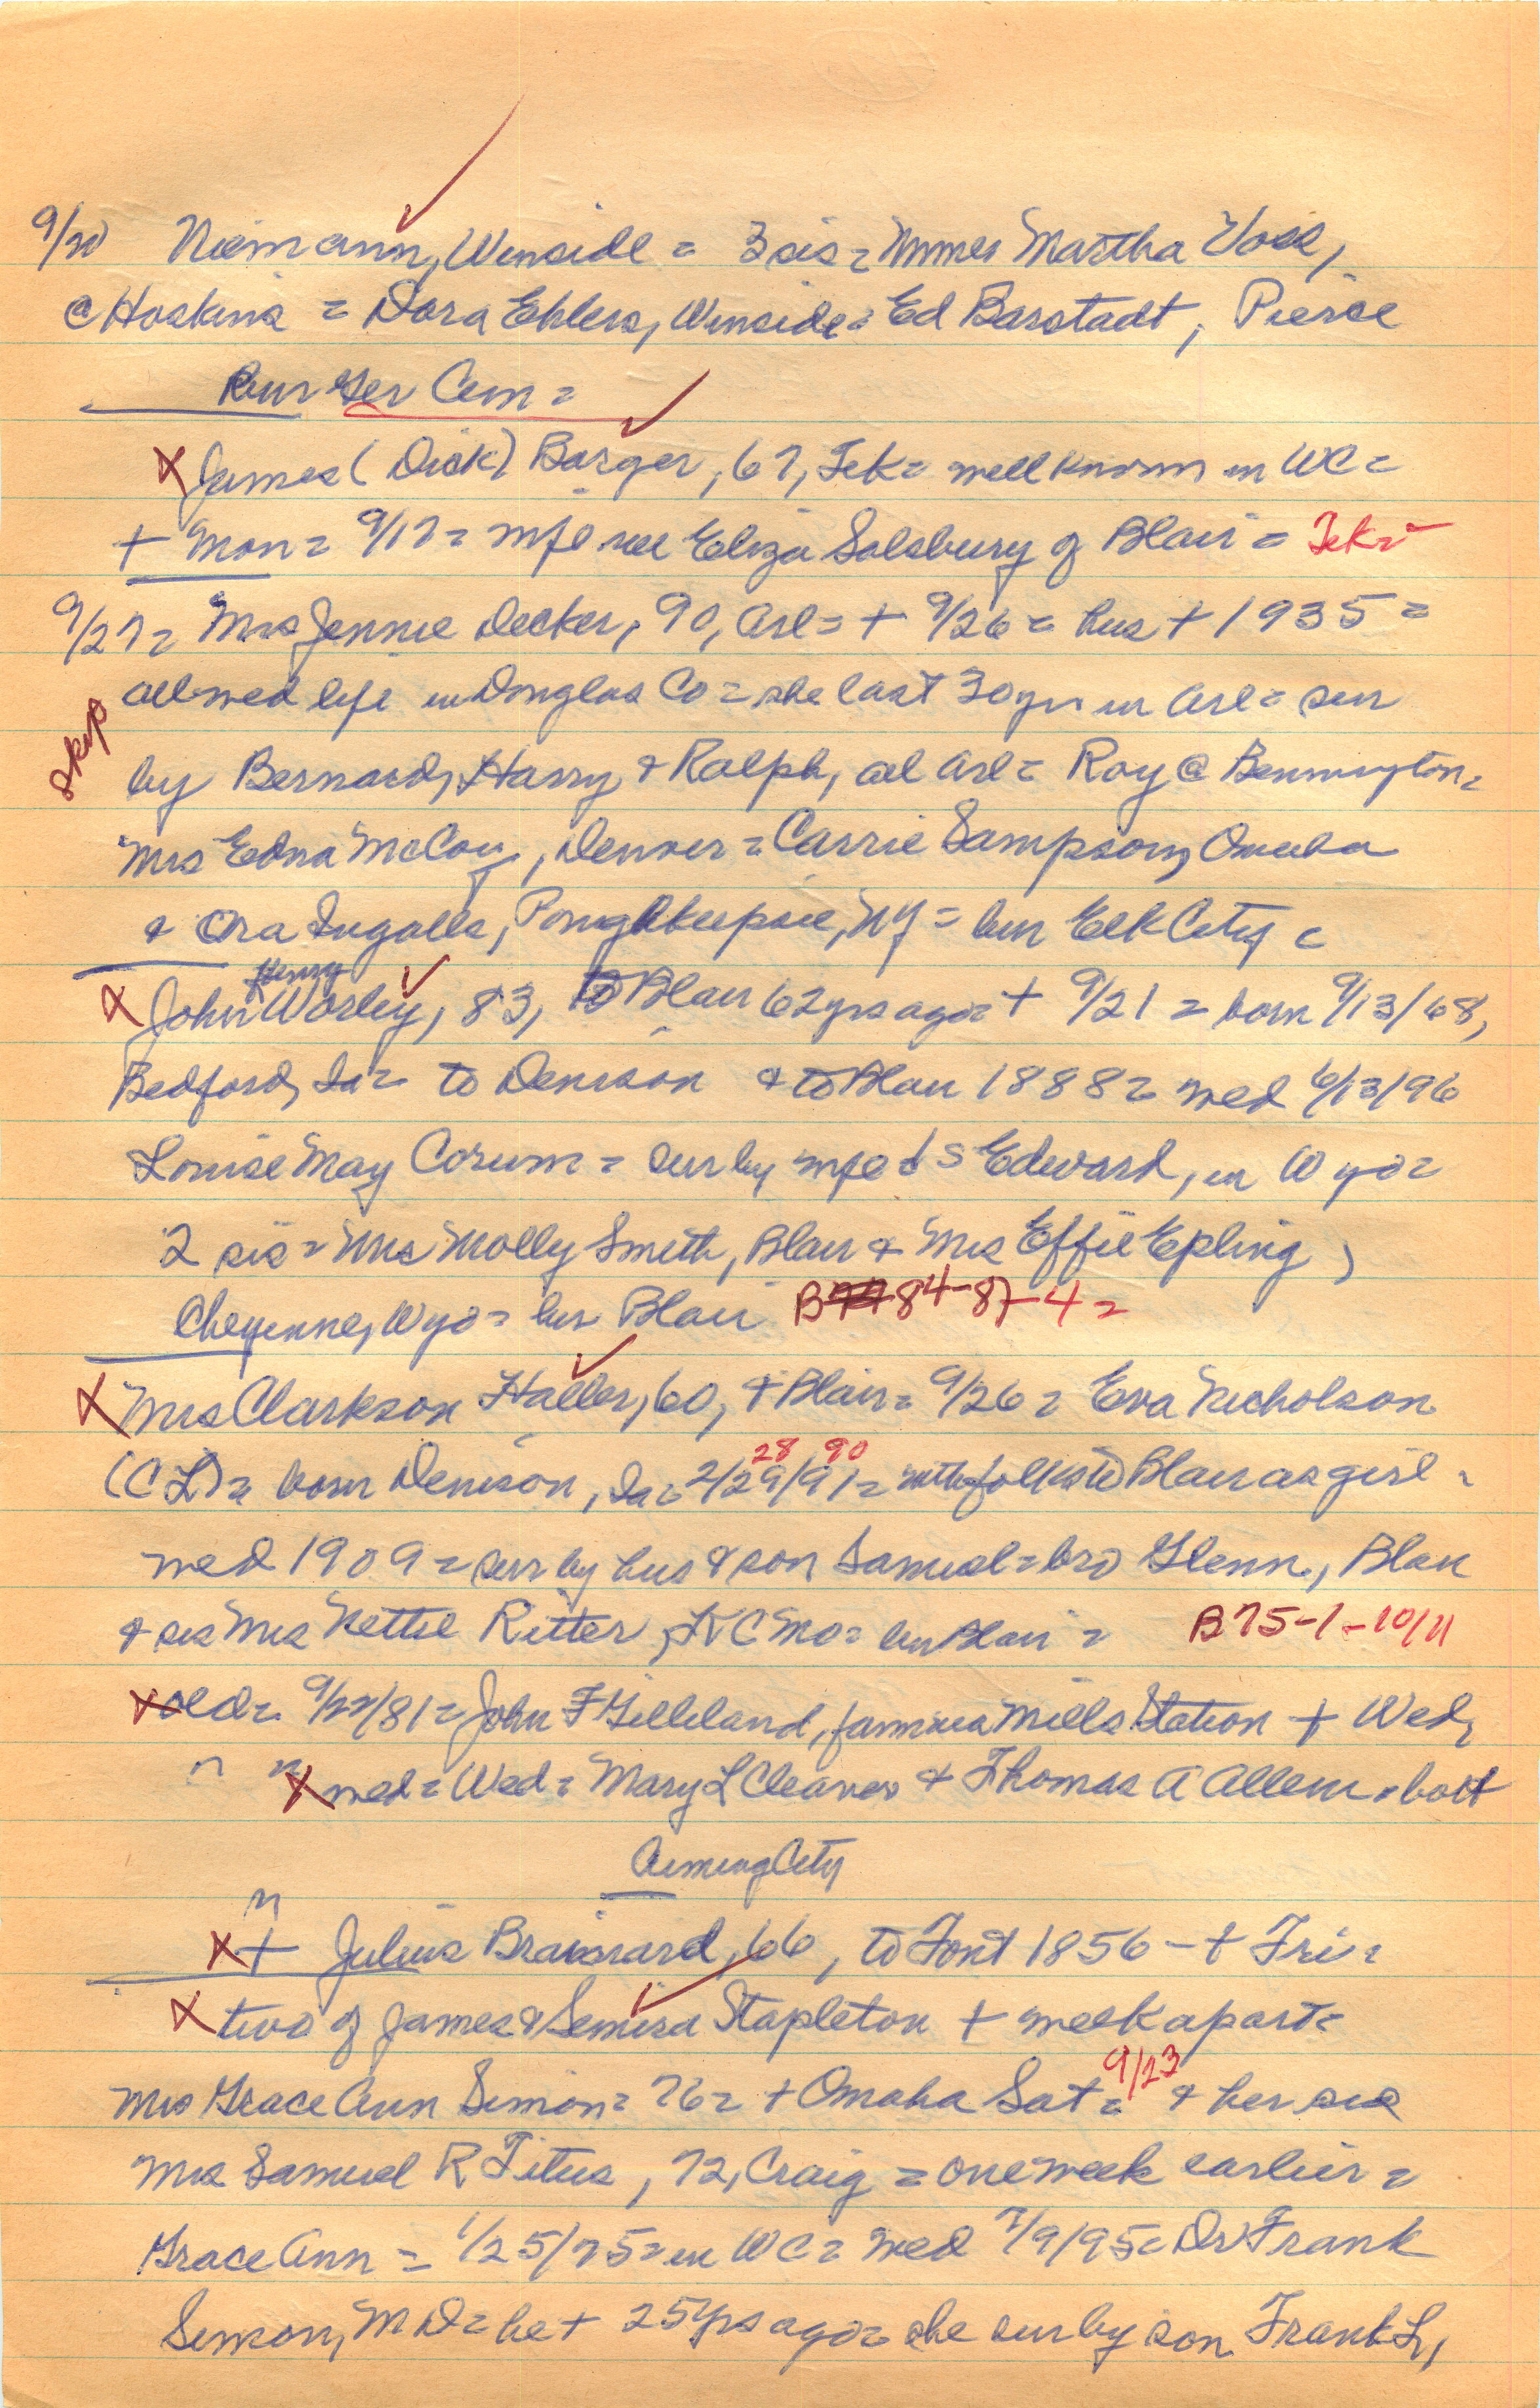 9/20 Niemann, Winside = 3 sis = Mmes Martha Voss,
@ Hoskins = Dora Ehlers, Winside = Ed Barstadt, Pierce
Bur Ger Cem =
X James (Dick) Barger, 67, Tek = well known in WC =
+ Mon = 9/17 = wife nee Eliza Salsbury of Blair = Tek =
9/27 = Mrs Jennie Decker, 90, Arl = + 9/26 = hus + 1935 =
all wed life in Douglas Co = she last 30 yrs in Arl = sur
skip
by Bernard, Harry & Ralph, all Arl = Roy @ Bennington =
Mrs Edna McCoy, Denver = Carrie Sampson, Omaha
& Ora Ingalls, Poughkeepsie, NY = bur Elk City =
Henry
X John Worley, 83, to Blair 62 yrs ago = + 9/21 = born 9/13/68,
Bedford, Ia = to Denison & to Blair 1888 = wed 6/13/96
Louise May Corum = sur by wife & s Edward, in Wyo =
2 sis = Mrs Molly Smith, Blair & Mrs Effie Epling,
Cheyenne, Wyo = bur Blair B 84-87-4 =
X Mrs Clarkson Haller, 60, + Blair = 9/26 = Eva Nicholson
28 90
(CL) = born Denison, Ia = 2/29/91 = with folks to Blair as girl =
wed 1909 = sur by hus & son Samuel = bro Glenn, Blair
& sis Mrs Nettie Ritter, KC Mo = bur Blair = B75-1-10/11
X old = 9/22/81 = John F Gilleland, famous Mills Station + Wed,
" " X wed = Wed = Mary L Cleaver & Thomas A Allen = both
Aeming City
"
X + Julius Brainard, 66, to Font 1856 - + Fri =
X two of James & Semira Stapleton + week apart =
9/23
Mrs Grace Ann Simon = 76 = + Omaha Sat = & her sis
Mrs Samuel R Titus, 72, Craig = one week earlier =
Grace Ann = 1/25/75 = in WC = wed 7/9/95 = Dr Frank
Simon, MD = he + 25 yrs ago = she sur by son Frank L,